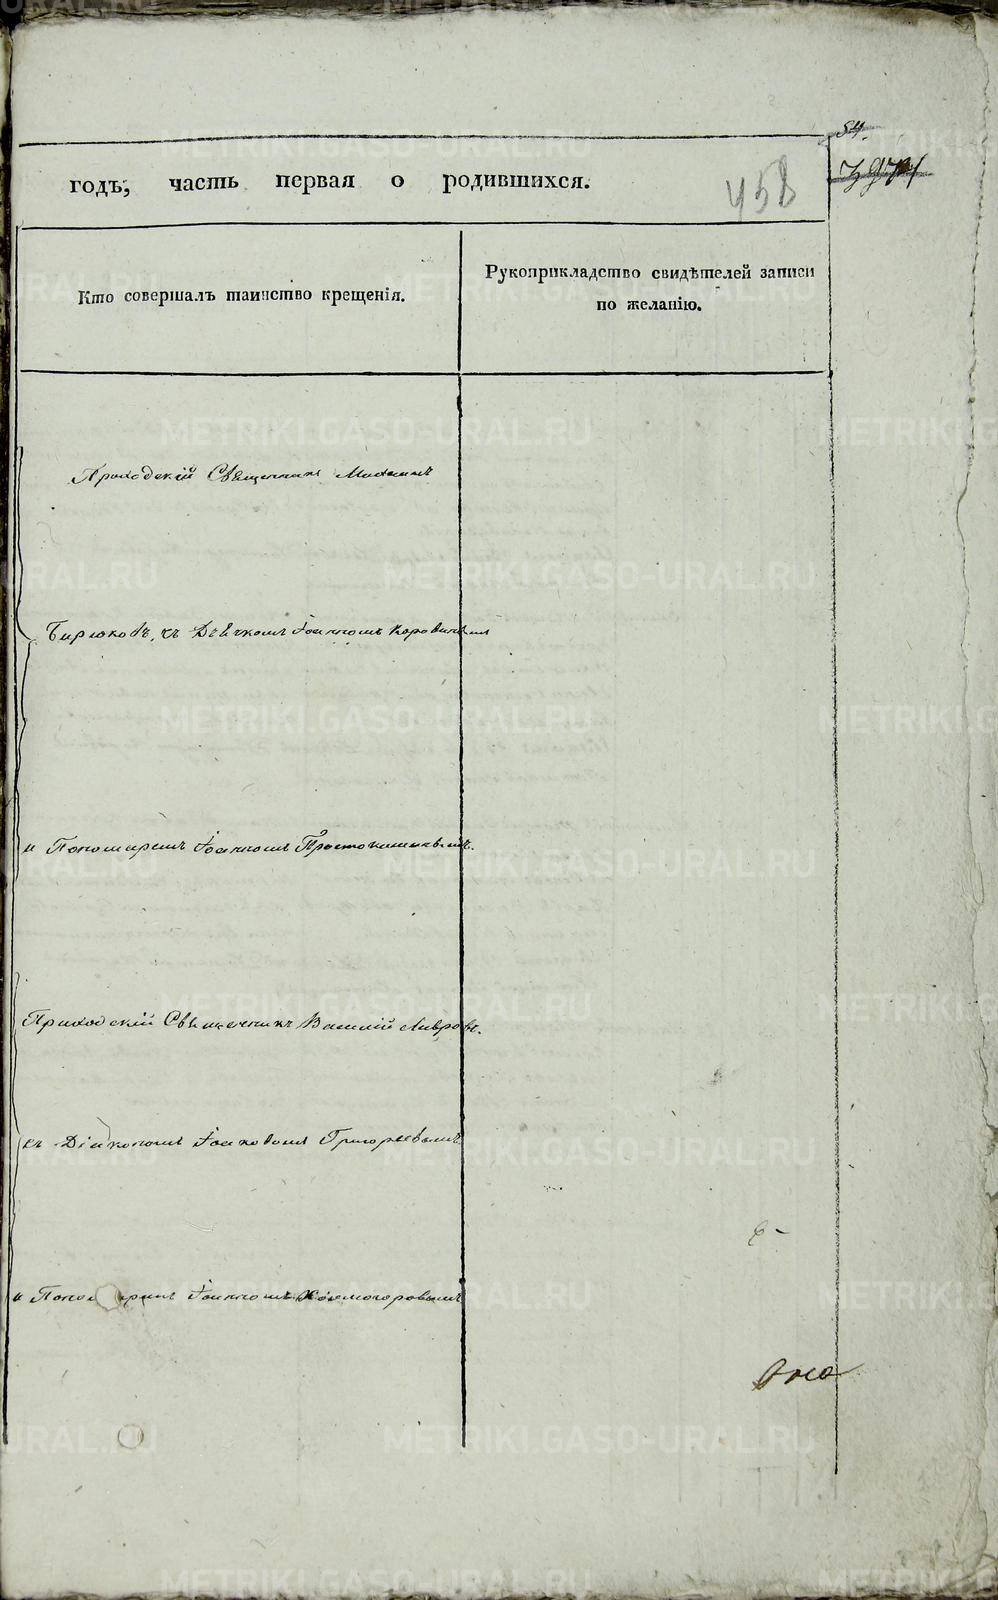 54.
годъ, часть первая о родившихся.
458
Кто совершалъ таинство крещенія.
Рукоприкладство свидѣтелей записи
по желанію.
Приходскій Священникъ Михаилъ
Бирюковъ, съ Дьячкомъ Іоанномъ Коровинымъ
и Пономаремъ Іоанномъ
Приходскій Священникъ Василій Лавровъ.
съ Діакономъ Іаковомъ Григорьевымъ
и Поно аремъ Іоанномъ Холмогоровымъ